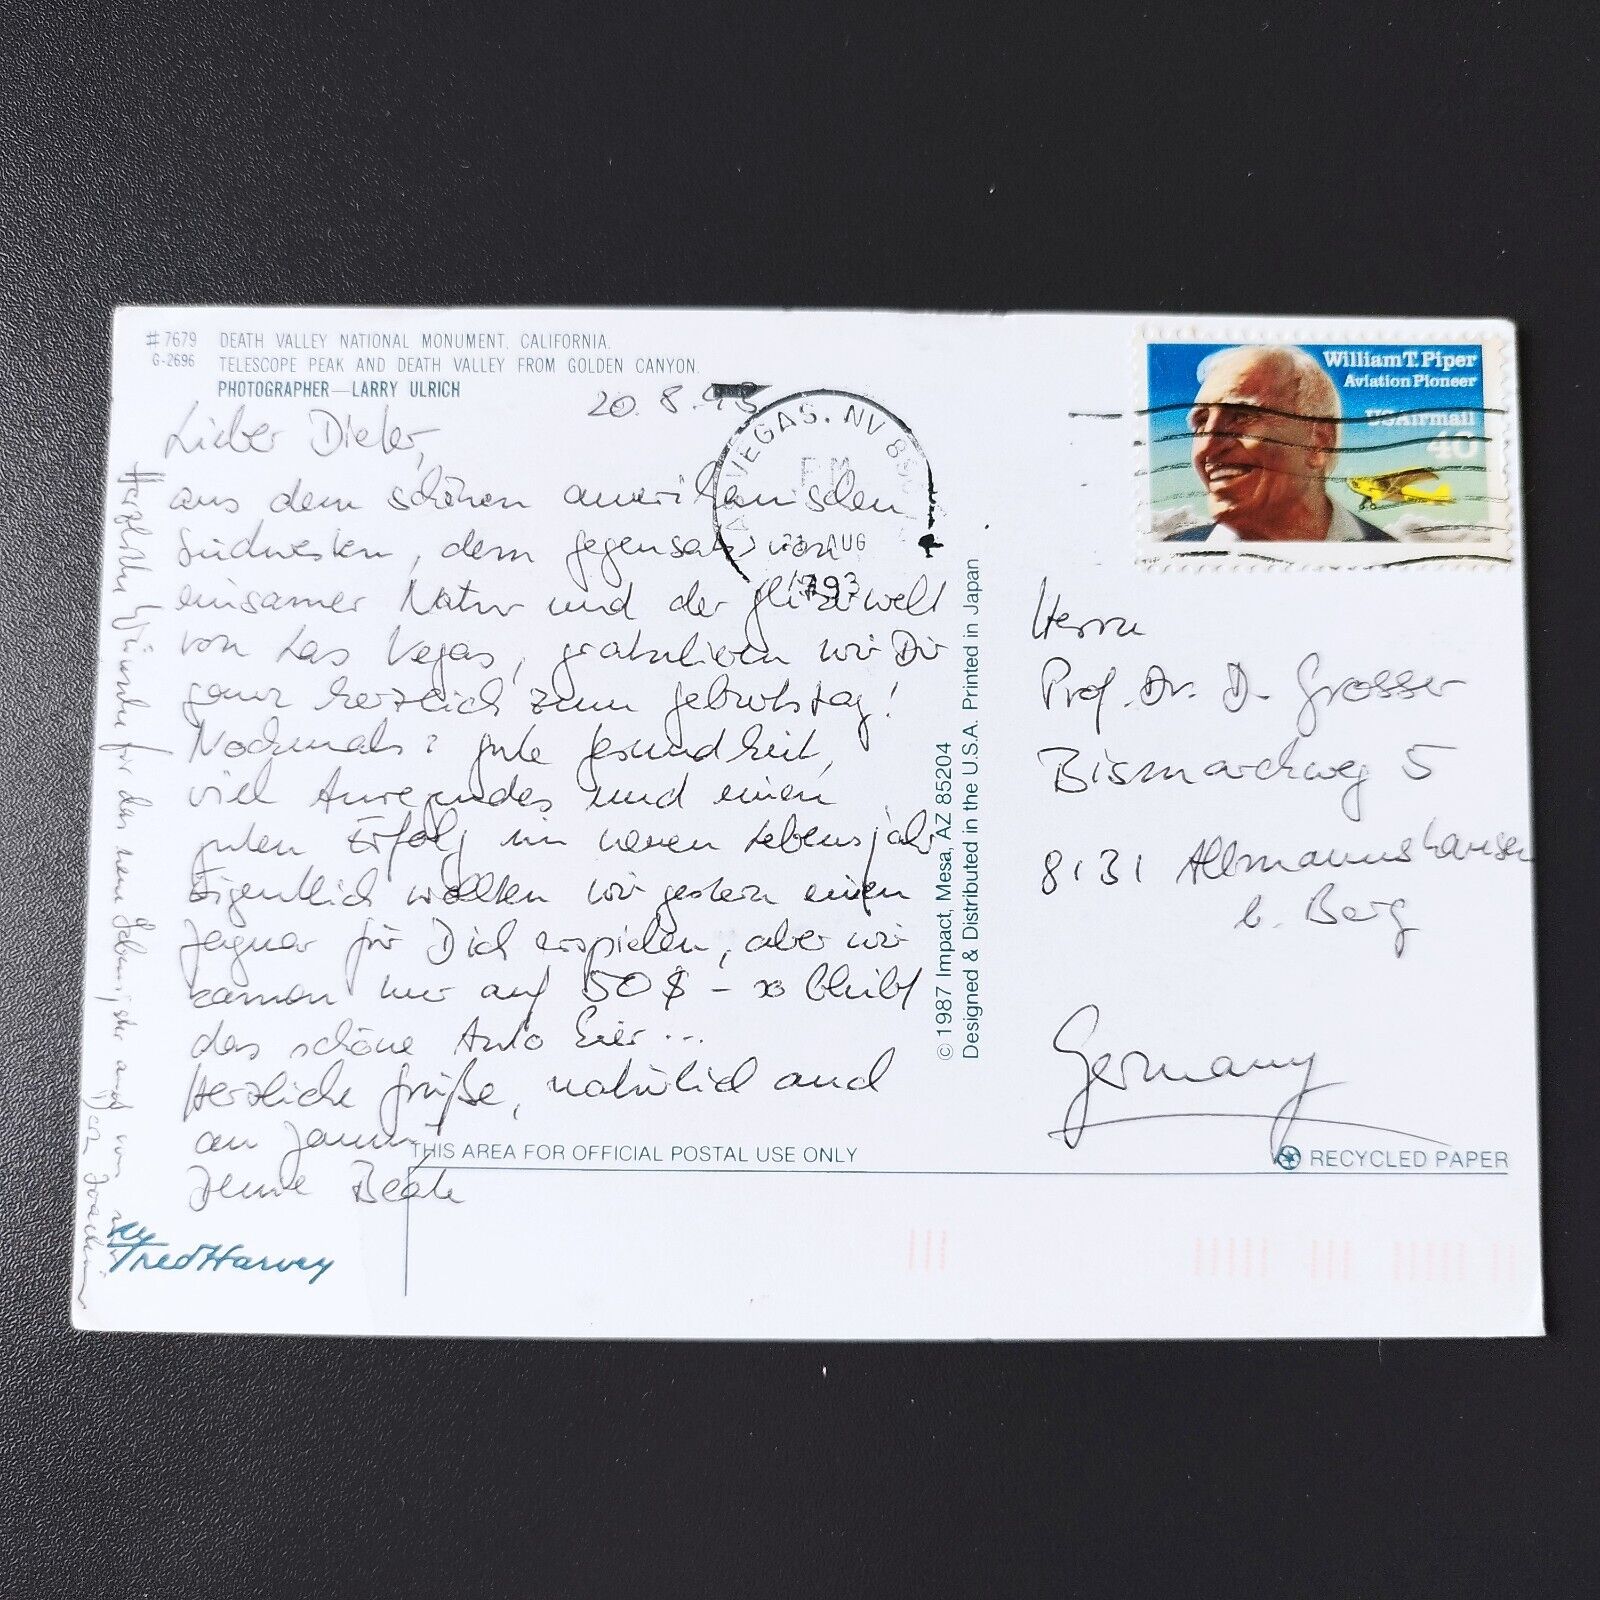 #7679 DEATH VALLEY NATIONAL MONUMENT, CALIFORNIA.
G-2696 TELESCOPE PEAK AND DEATH VALLEY FROM GOLDEN CANYON.
PHOTOGRAPHER—LARRY ULRICH
20.8.93
Lieber Dieter,
aus dem schönen amerikanischen
Südwesten, dem Gegensatz von
einsamer Natur und der Glitzerwelt
von Las Vegas, gratulieren wir Dir
ganz herzlich zum Geburtstag!
Nochmals: gute Gesundheit,
viel Anregendes und einen
guten Erfolg im neuen Lebensjahr
Eigentlich wollten wir gestern einen
Jaguar für Dich erspielen, aber wir
kamen nur auf 50$ – so bleibt
das schöne Auto hier...
Herzliche Grüße, natürlich auch
an
Deine Beate
Herzliche Wünsche für das neue Lebensjahr auch von
Joachim
Fred Harvey
VEGAS, NV
PM
AUG
1993
William T. Piper
Aviation Pioneer
USAirmail
40
© 1987 Impact, Mesa, AZ 85204
Designed & Distributed in the U.S.A. Printed in Japan
Herrn
Prof. Dr. D. Grosser
Bismarckweg 5
8131 Allmannshausen
b. Berg
Germany
THIS AREA FOR OFFICIAL POSTAL USE ONLY
RECYCLED PAPER